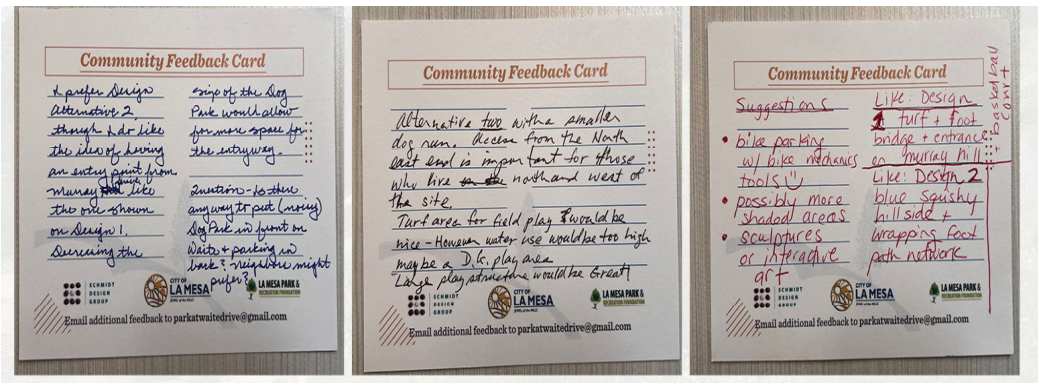 Community Feedback Card
I prefer Design
Alternative 2
though I do like
the idea of having
an entry point from
Murray Drive like
the one shown
on Design 1.
Decreasing the
size of the Dog
Park would allow
for more space for
the entryway.
Question - Is there
anyway to put (noisy)
Dog Park in front on
Waite & parking in
back? neighbors might
prefer?
SCHMIDT
DESIGN
GROUP
CITY OF
LA MESA
JEWEL of the HILLS
LA MESA PARK &
RECREATION FOUNDATION
Email additional feedback to parkatwaitedrive@gmail.com
Community Feedback Card
Alternative two with a smaller
dog run. Access from the North
east end is important for those
who live north and west of
the site.
Turf area for field play would be
nice - However water use would be too high
maybe a D.G. play area
Large play structure would be Great!
SCHMIDT
DESIGN
GROUP
CITY OF
LA MESA
JEWEL of the HILLS
LA MESA PARK &
RECREATION FOUNDATION
Email additional feedback to parkatwaitedrive@gmail.com
Community Feedback Card
Suggestions
• bike parking
w/ bike mechanics
tools
• possibly more
shaded areas
• sculptures
or interactive
art
Like: Design
1 turf + foot
bridge + entrance
on murray hill
+ basketball
court
Like: Design 2
blue squishy
hillside +
wrapping foot
path network
SCHMIDT
DESIGN
GROUP
CITY OF
LA MESA
JEWEL of the HILLS
LA MESA PARK &
RECREATION FOUNDATION
Email additional feedback to parkatwaitedrive@gmail.com